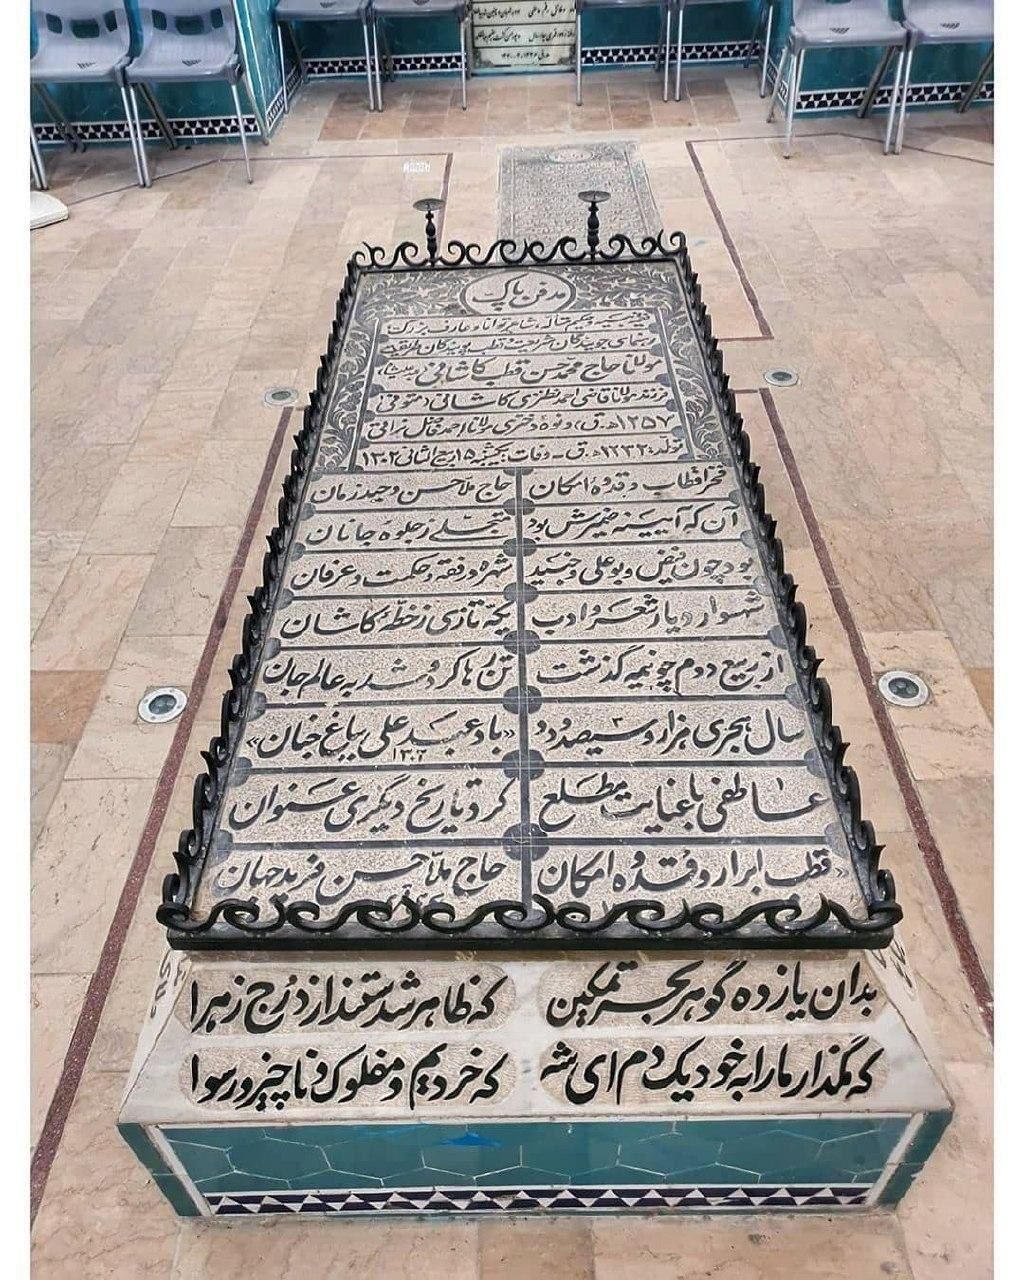 مدفن پاک
فقیه و حکیم متأله، شاعر توانا و عارف بزرگ
رهنمای جویندگان شریعت، قطب پویندگان طریقت
مولانا حاج محمد حسن قطب کاشانی
فرزند مولانا قاضی احمد نطنزی کاشانی (متوفی
۱۲۵۷ ه.ق) و نوهٔ دختری مولانا احمد فاضل نراقی
تولد: ۱۲۳۲ ه.ق - وفات: یکشنبه ۱۵ ربیع الثانی ۱۳۰۲
فخر اقطاب و قدوهٔ امکان حاج ملا حسن وحید زمان
آن که آیینه ضمیرش بود متجلی ز جلوهٔ جانان
بود چون فیض و بوعلی و جنید شهره در فقه و حکمت و عرفان
شهسوار دیار شعر و ادب یکه تازی ز خطهٔ کاشان
از ربیع دوم چو نیمه گذشت تن رها کرد و شد به عالم جان
سال هجری هزار و سیصد و دو «باد عبد علی بباغ جنان»
۱۳۰۲
عاطفی با عنایت مطلع کرد تاریخ دیگری عنوان
«قطب ابرار و قدوه امکان حاج ملا حسن فرید جهان
بدان یازده گوهر بحر تمکین که ظاهر شدستند از درج زهرا
که مگذار ما را به خود یک دم ای شه که خردیم و مفلوک و ناچیز و رسوا